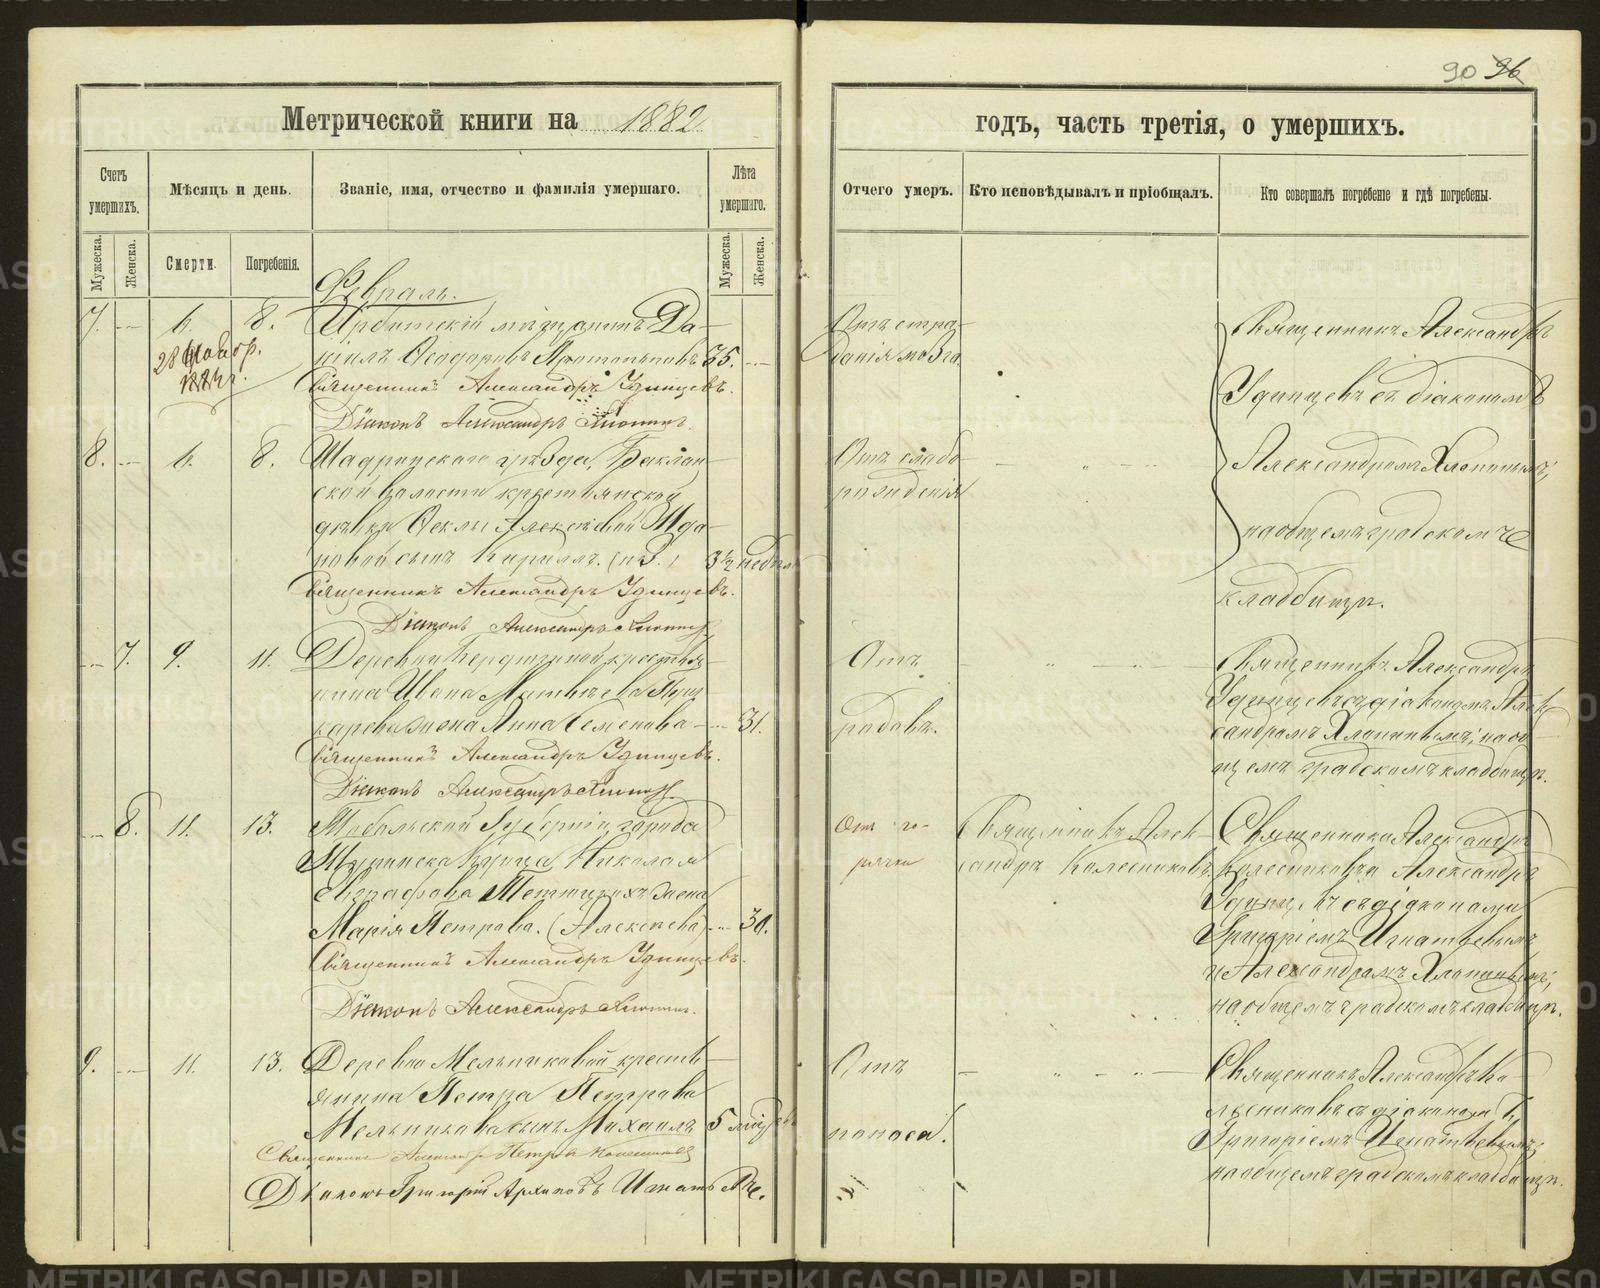 90 96
Метрической книги на 1882
Счетъ умершихъ.
Мѣсяцъ и день.
Званіе, имя, отчество и фамилія умершаго.
Лѣта умершаго.
Мужеска.
Женска.
Смерти.
Погребенія.
Мужеска.
Женска.
Февраль.
7. 6. 8. Ирбитскій мѣщанинъ Да-
28
ніилъ Ѳеодоровъ 35.
Священникъ Александръ Удинцевъ.
Діаконъ Александръ Хлопинъ.
8. 6. 8. Шадринскаго уѣзда, Баклан-
ской волости крестьянской
дѣвки Ѳеклы Алексѣевой Жда-
новой сынъ Кириллъ. 3½ недѣли
Священникъ Александръ Удинцевъ.
Діаконъ Александръ Хлопинъ
7. 9. 11. Деревни крестья-
нина Ивана Матвѣева Пуш-
карева жена Анна Семенова 31.
Священникъ Александръ Удинцевъ.
Діаконъ Александръ Хлопинъ
8. 11. 13. Тобольской Губерніи, города
Туринска Купца Николая
Евграфова жена
Марія Петрова. (Алексѣева) 30.
Священникъ Александръ Удинцевъ.
Діаконъ Александръ Хлопинъ.
9. 11. 13. Деревни Мельниковой кресть-
янина Петра Петрова
Мельникова сынъ Михаилъ 5
Священникъ Александръ Петровъ Колесниковъ
Діаконъ Григорій Архиповъ Игнатьевъ.
годъ, часть третія, о умершихъ.
Отчего умеръ.
Кто исповѣдывалъ и пріобщалъ.
Кто совершалъ погребеніе и гдѣ погребены.
Отъ стра-
данія мозга.
Священникъ Александръ
Удинцевъ съ діакономъ
Отъ слабо-
рожденія
Александромъ Хлопинымъ;
на общемъ градскомъ
кладбищѣ.
Отъ
родовъ.
Священникъ Александръ
Удинцевъ съ діакономъ Алек-
сандромъ Хлопинымъ; на об-
щемъ градскомъ кладбищѣ.
Отъ го-
рячки
Священникъ Алек-
сандръ Колесниковъ.
Священники Александръ
Колесниковъ и Александръ
Удинцевъ съ діаконами
Григоріемъ Игнатьевымъ
и Александромъ Хлопинымъ;
на общемъ градскомъ кладбищѣ.
Отъ
поноса.
Священникъ Александръ Ко-
лесниковъ съ діакономъ
Григоріемъ Игнатьевымъ;
на общемъ градскомъ кладбищѣ.
METRIKI.GASO-URAL.RU